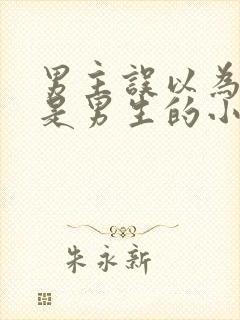 男主誤以為
是男生的小
朱永新